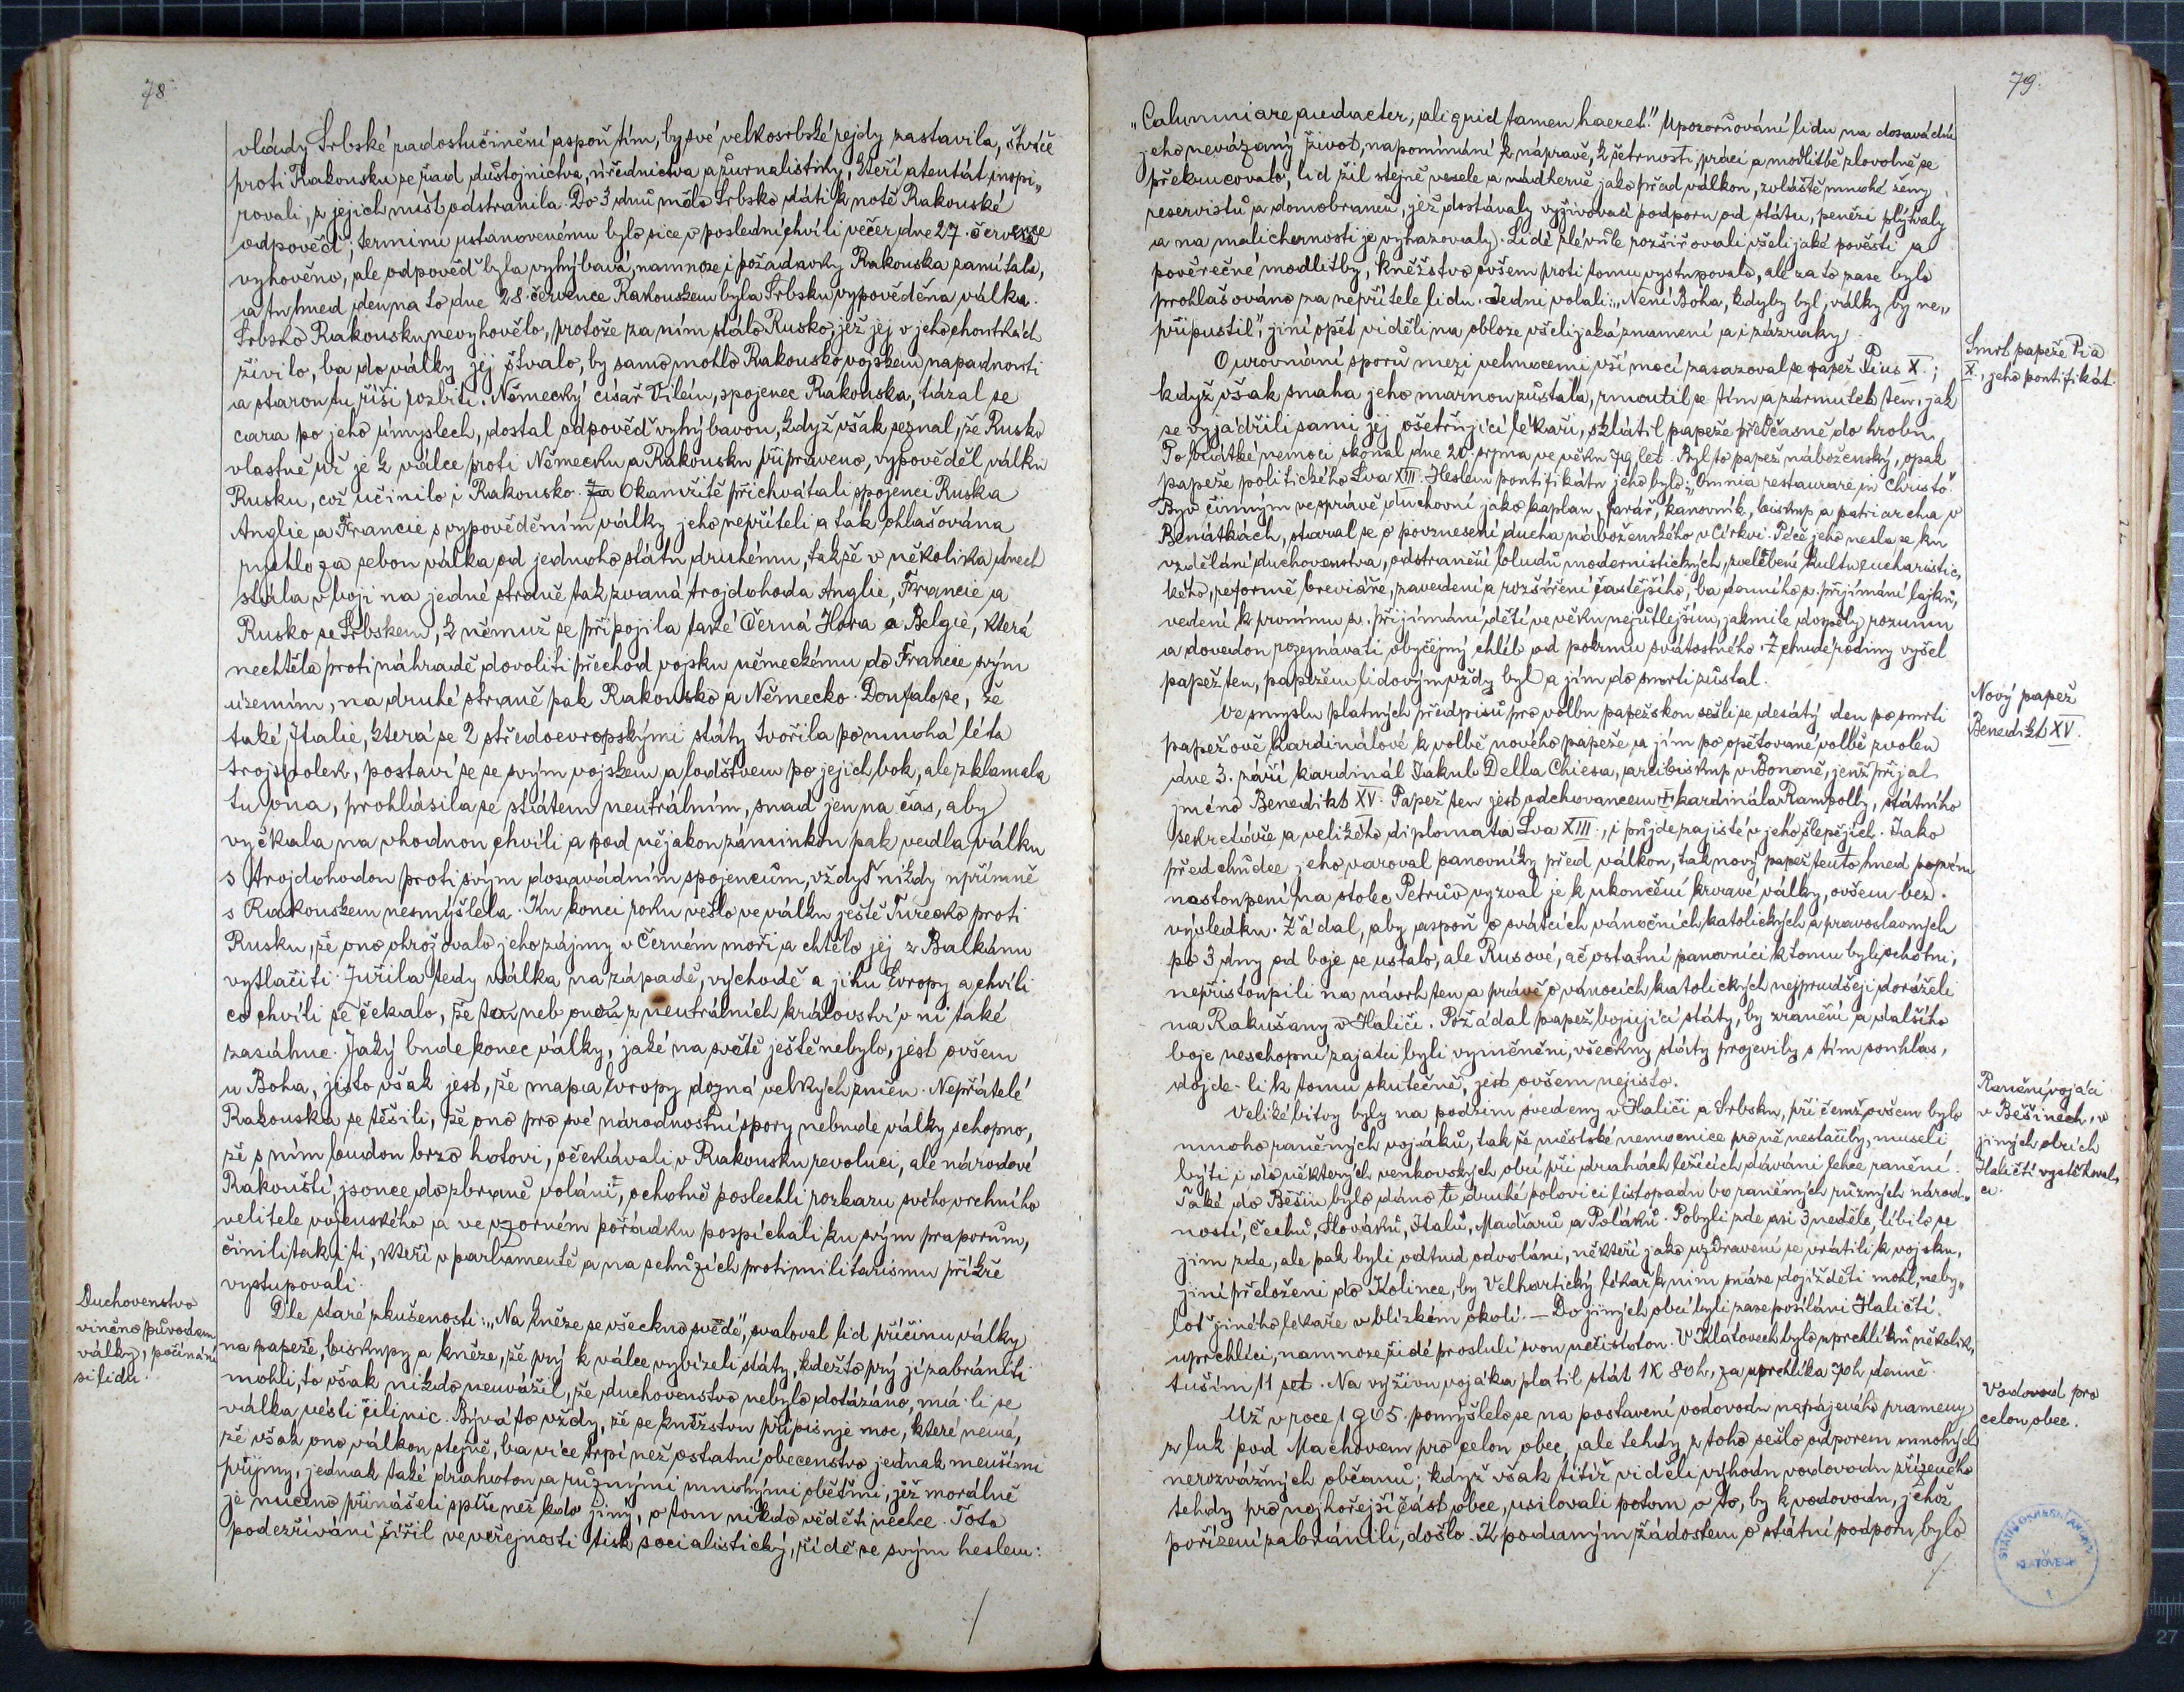 78
vlády Srbské zadostučinění aspoň tím, by své velkosrbské rejdy zastavila, štváče
proti Rakousku ze řad důstojnictva, úřednictva a žurnalistiky, kteří atentát inspi„
rovali, z jejich míst odstranila. Do 3 dnů mělo Srbsko dáti k notě Rakouské
odpověď; termínu ustanovenému bylo sice v poslední chvíli večer dne 27. července
vyhověno, ale odpověď byla vyhýbavá, namnoze i požadavky Rakouska zamítala,
a tu hned den na to dne 28. července Rakouskem byla Srbsku vypověděna válka.
Srbsko Rakousku nevyhovělo, protože za ním stálo Rusko, jež jej v jeho choutkách
živilo, ba do války jej štvalo, by samo mohlo Rakousko vojskem napadnouti
a starou tu říši rozbíti. Německý císař Vilém, spojenec Rakouska, tázal se
cara po jeho úmyslech, dostal odpověď vyhýbavou, když však seznal, že Rusko
vlastně už je k válce proti Německu a Rakousku připraveno, vypověděl válku
Rusku, což učinilo i Rakousko. Okamžitě přichvátali spojenci Ruska
Anglie a Francie s vypověděním války jeho nepříteli a tak ohlašována
rychle za sebou válka od jednoho státu druhému, takže v několika dnech
stála v boji na jedné straně tak zvaná trojdohoda Anglie, Francie a
Rusko se Srbskem, k němuž se připojila také Černá Hora a Belgie, která
nechtěla proti náhradě dovoliti přechod vojsku německému do Francie svým
územím, na druhé straně pak Rakousko a Německo. Doufalo se, že
také Italie, která se 2 středoevropskými státy tvořila po mnohá léta
trojspolek, postaví se se svým vojskem a loďstvem po jejich bok, ale zklamala
tu ona, prohlásila se státem neutrálním, snad jen na čas, aby
vyčkala na vhodnou chvíli a pod nějakou záminkou pak vedla válku
s trojdohodou proti svým dosavádním spojencům, vždyť nikdy upřímně
s Rakouskem nesmýšlela. Ku konci roku vešlo ve válku ještě Turecko proti
Rusku, že ono ohrožovalo jeho zájmy v Černém moři a chtělo jej z Balkánu
vytlačiti. Zuřila tedy válka na západě, východě a jihu Evropy a chvíli
co chvíli se čekalo, že to neb ono z neutrálních království v ni také
zasáhne. Jaký bude konec války, jaké na světě ještě nebylo, jest ovšem
u Boha, jisto však jest, že mapa Evropy dozná velkých změn. Nepřátelé
Rakouska se těšili, že ono pro své národnostní spory nebude války schopno,
že s ním budou brzo hotovi, očekávali v Rakousku revoluci, ale národové
Rakouští, jsouce do zbraně voláni, ochotně poslechli rozkazu svého vrchního
velitele vojenského a ve vzorném pořádku pospíchali ku svým praporům,
činili tak i ti, kteří v parlamentě a na schůzích proti militarismu příkře
vystupovali.
Duchovenstvo
viněno původem
války, počínání
si lidu.
Dle staré zkušenosti: „Na kněze se všecko svede“, svaloval lid příčinu války
na papeže, biskupy a kněze, že prý k válce vybízeli státy, kdežto prý ji zabrániti
mohli, to však nikdo neuvážil, že duchovenstvo nebylo dotázáno, má-li se
válka vésti čili nic. Bývá to vždy, že se kněžstvu připisuje moc, které nemá,
že však ono válkou stejně, ba více trpí než ostatní obecenstvo jednak menšími
příjmy, jednak také drahotou a různými mnohými oběťmi, jež morálně
je nuceno přinášeti spíše než kdo jiný, o tom nikdo věděti nechce. Toto
podezřívání šířil ve veřejnosti tisk socialistický, řídě se svým heslem:
79.
„Calumniare audacter, aliquid tamen haeret.“ Upozorňování lidu na dosavádní
jeho nevázaný život, napomínání k nápravě, k šetrnosti, práci a modlitbě zlovolně se
překrucovalo, lid žil stejně vesele a nádherně jako před válkou, zvláště mnohé ženy
reservistů a domobranců, jež dostávaly vyživovací podporu od státu, penězi plýtvaly
a na malichernosti je vyhazovaly. Lidé zlé vůle rozšiřovali všelijaké pověsti a
pověrečné modlitby, kněžstvo ovšem proti tomu vystupovalo, ale za to zase bylo
prohlašováno za nepřítele lidu. Jedni volali: „Není Boha, kdyby byl, války by ne„
připustil“, jiní opět viděli na obloze všelijaká znamení a i zázraky.
Smrt papeže Pia
X., jeho pontifikát.
O urovnání sporů mezi velmocemi vší mocí zasazoval se papež Pius X.;
když však snaha jeho marnou zůstala, rmoutil se tím a zármutek ten, jak
se vyjádřili sami jej ošetřující lékaři, sklátil papeže předčasně do hrobu.
Po krátké nemoci skonal dne 20. srpna ve věku 79 let. Byl to papež náboženský, opak
papeže politického Lva XIII. Heslem pontifikátu jeho bylo: „Omnia restaurare in Christo“.
Byv činným ve správě duchovní jako kaplan, farář, kanovník, biskup a patriarcha v
Benátkách, staral se o povznesení ducha náboženského v Církvi. Péče jeho nesla se ku
vzdělání duchovenstva, odstranění bludů modernistických, zvelebení kultu eucharistic„
kého, reformě breviáře, zavedení a rozšíření častějšího, ba denního sv. přijímání lajků,
vedení k prvnímu sv. přijímání dětí ve věku nejútlejším, jakmile dospěly rozumu
a dovedou rozeznávati obyčejný chléb od pokrmu svátostného. Z chudé rodiny vyšel
papež ten, papežem lidovým vždy byl a jím do smrti zůstal.
Nový papež
Benedikt XV.
Ve smyslu platných předpisů pro volbu papežskou sešli se desátý den po smrti
papežově kardinálové k volbě nového papeže a jím po opětované volbě zvolen
dne 3. září kardinál Jakub Della Chiesa, arcibiskup v Bononě, jenž přijal
jméno Benedikt XV. Papež ten jest odchovancem kardinála Rampolly, státního
sekretáře a velikého diplomata Lva XIII., i půjde zajisté v jeho šlepějích. Jako
předchůdce jeho varoval panovníky před válkou, tak nový papež tento hned po svém
nastoupení na stolec Petrův vyzval je k ukončení krvavé války, ovšem bez
výsledku. Žádal, aby aspoň o svátcích vánočních katolických a pravoslavných
po 3 dny od boje se ustalo, ale Rusové, ač ostatní panovníci k tomu byli ochotni,
nepřistoupili na návrh ten a právě o vánocích katolických nejprudčeji doráželi
na Rakušany v Haliči. Požádal papež bojující státy, by zranění a dalšího
boje neschopní zajatci byli vyměněni, všeckny státy projevily s tím souhlas,
dojde-li k tomu skutečně, jest ovšem nejisto.
Ranění vojáci
v Běšinech, v
jiných obcích
Haličtí vystěhoval„
ci.
Veliké bitvy byly na podzim svedeny v Haliči a Srbsku, při čemž ovšem bylo
mnoho raněných vojáků, tak že městské nemocnice pro ně nestačily, museli
býti i do některých venkovských obcí při drahách ležících dáváni lehce ranění.
Také do Běšin bylo dáno v druhé polovici listopadu raněných různých národ„
ností, Čechů, Slováků, Italů, Maďarů a Poláků. Pobyli zde asi 3 neděle, líbilo se
jim zde, ale pak byli odtud odvoláni, někteří jako uzdravení se vrátili k vojsku,
jiní přeloženi do Kolince, by Velhartický lékař k nim snáze dojížděti mohl, neby„
loť jiného lékaře v blízkém okolí. — Do jiných obcí byli zase posíláni Haličtí
uprchlíci, namnoze židé prosluli svou nečistotou. V Klatovech bylo uprchlíků několik,
tuším 11 set. Na výživu vojáka platil stát 1K 80h, za uprchlíka 70h denně.
Vodovod pro
celou obec.
Už v roce 1905 pomýšlelo se na postavení vodovodu napájeného prameny
z luk pod Machovem pro celou obec, ale tehdy z toho sešlo odporem mnohých
nerozvážných občanů; když však titíž viděli výhodu vodovodu zřízeného
tehdy pro nejhořejší část obce, usilovali potom o to, by k vodovodu, jehož
pořízení zabránili, došlo. K podaným žádostem o státní podporu bylo
STÁTNÍ OKRESNÍ ARCHIV
V
KLATOVECH
1
27